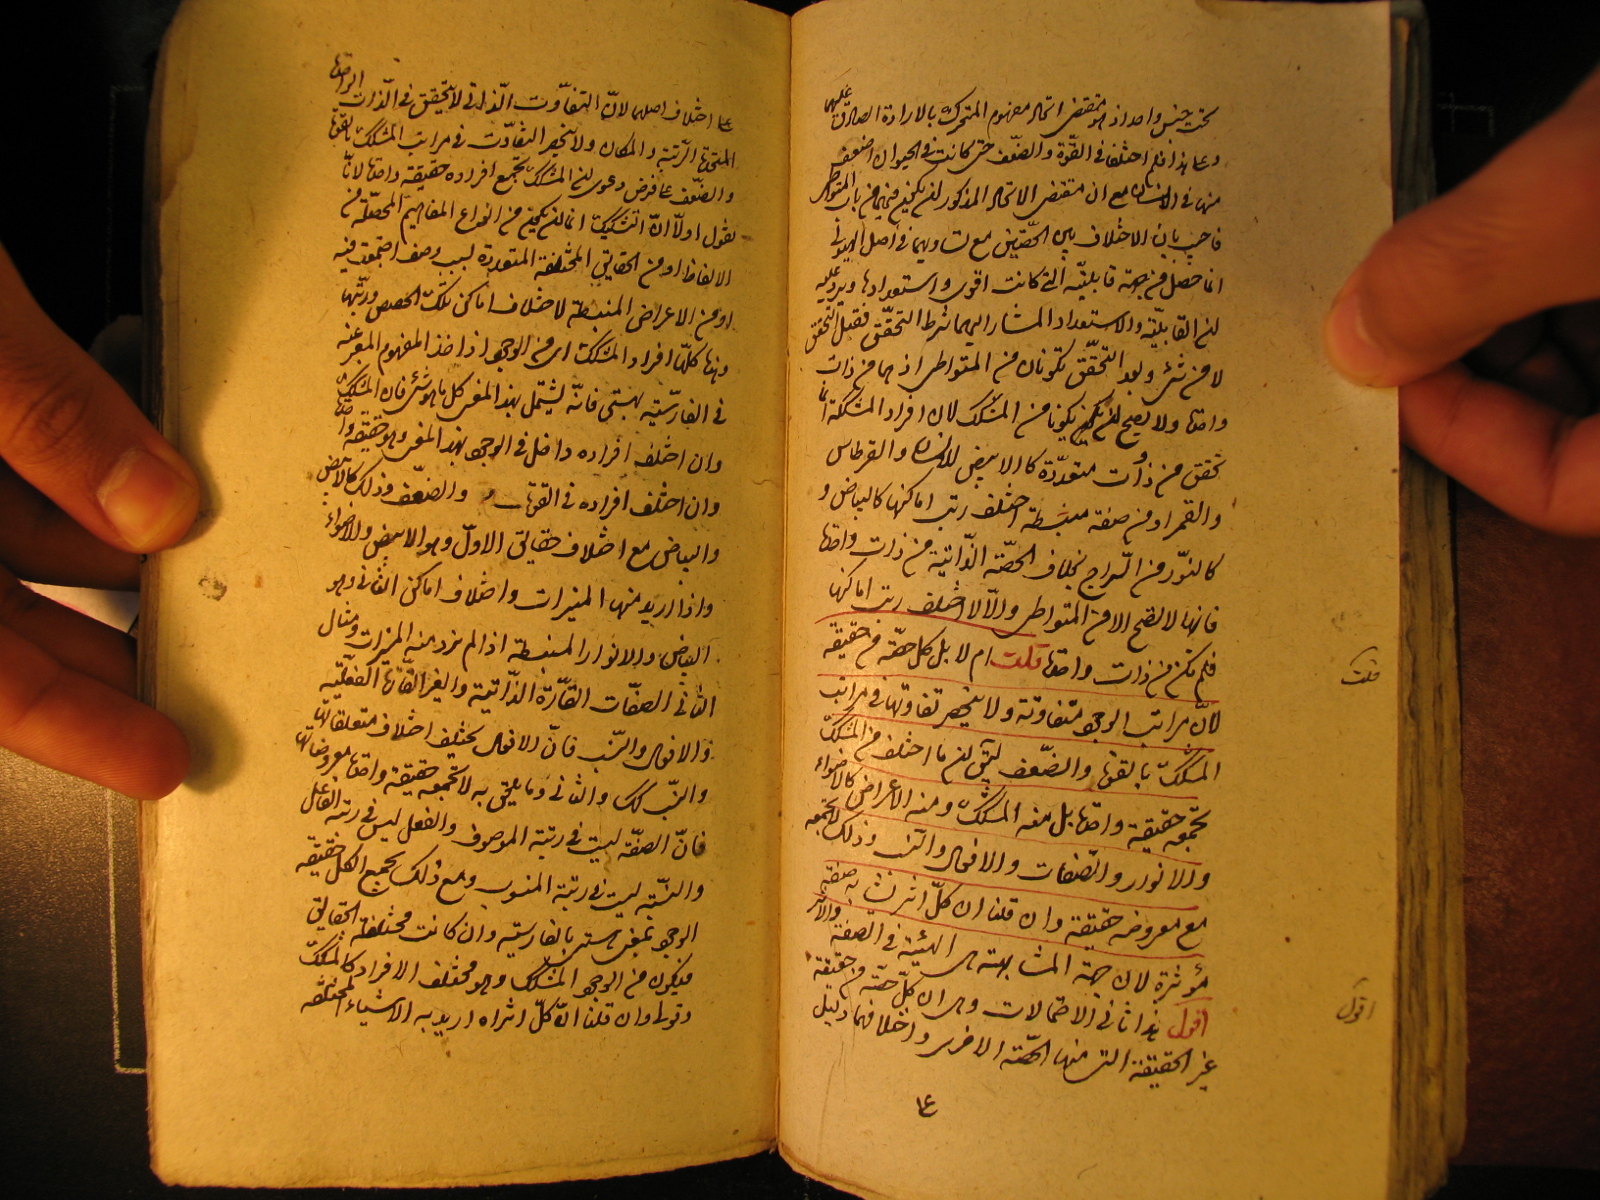 تحت جنس واحد اذ مقتضى اتحاد مفهوم المتحرك بالارادة الصادق عليهما
وعلى هذا فلم اختلفا في القوّة والضّعف حتى كانت في الحيوان اضعف
منها في الانسان مع ان مقتضى الاتحاد المذكور ان يكونا من باب المتواطي
فاجيب بان الاختلاف بين الحصّتين مع تساويهما في اصل الهيولى
انما حصل من جهة قابليّته التي كانت اقوى واستعدادها ويرد عليه
ان القابليّة والاستعداد المشار اليهما شرط التحقّق فقبل التحقق
لا من شئ وبعد التحقّق يكونان من المتواطي اذ هما من ذات
واحدة ولا يصح ان يكونا من المشكك لان افراد المشككة انما
تحقق من ذوات متعدّدة كالابيض للانسان والقرطاس
والقمر او من صفة منبسطة اختلف رتب اماكنها كالبياض و
كالنّور من السّراج بخلاف الحصّة الذّاتية من ذات واحدة
فانها لا تصح الا من المتواطي والّا لاختلف رتب اماكنها
فلم تكن من ذات واحدة قلت ام لا بل كل حصّة من حقيقة
لانّ مراتب الوجود متفاوتة ولا ينحصر تفاوتها في مراتب
المشكّك بالقوة والضّعف ليتمّ ان ما اختلف من المشكك
تجمعه حقيقة واحدة بل منه المشكّك ومنه الاعراض كالاضواء
والانوار والصّفات والافعال والنّسب وذلك لا تجمعه
مع معروضه حقيقة وان قلنا ان كلّ اثر يشابه صفة
مؤثرة لان جهة المشابهة هي الهيئة في الصفة والاثر
اقول هذا ثاني الاحتمالات وهي ان كلّ حصّة من حقيقة
غير الحقيقة التي منها الحصّة الاخرى واختلافهما دليل
على
قلت
اقول
على اختلاف اصلهما لانّ التفاوت الذّاتي لا يتحقق في الذّات الواحدة
المتحدة الرّتبة والمكان ولا ينحصر التفاوت في مراتب المشكّك بالقوة
والضّعف على فرض دعوى ان المشكّك تجمع افراده حقيقة واحدة لانّا
نقول اولا انّ التشكيك انما يكون من انواع المفاهيم المحصّلة من
الالفاظ او من الحقايق المختلفة المتعدّدة لسبب وصف اجتمعت فيه
او من الاعراض المنبسطة لاختلاف اماكن تلك الحصص ورتبها
وهذا كلّها افراد المشكّك اي من الوجود اذا اخذ المفهوم المعبر عنه
في الفارسيّة بهستي فانّه يشتمل بهذا المعنى كل ما هو شئ فان المشكّك
وان اختلف افراده داخل في الوجود بهذا المعنى وهو حقيقة واحدة
وان اختلف افراده في القوة والضعف وذلك كالابيض
والبياض مع اختلاف حقايق الاول وهو الابيض والاضواء
واذا اريد منها المنيرات واختلاف اماكن الثاني وهو
البياض والانوار المنبسطة اذا لم نرد منه المنيرات ومثال
الثاني الصّفات القارّة الذّاتية والغير القارّة الفعليّة
والافعال والنّسب فانّ الافعال يختلف اختلاف متعلقاتها
والنّسب كك والثاني وما يلحق به لا تجمعه حقيقة واحدة معروضاتها
فانّ الصفة ليست في رتبة الموصوف والفعل ليس في رتبة الفاعل
والنّسبة ليست في رتبة المنسوب ومع ذلك يجمع الكل حقيقة
الوجود بمعنى هستي بالفارسيّة وان كانت مختلفة الحقايق
فيكون من الوجود المشكّك وهو مختلف الافراد كالمشكّك
وقولي وان قلنا انّ كلّ اثر اه اريد به الاشياء المختلفة